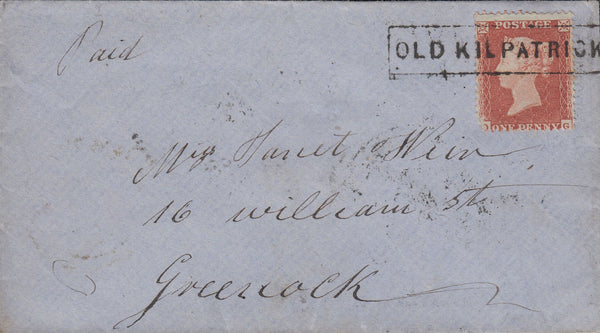 Paid
OLD KILPATRICK
POSTAGE
ONE PENNY
G
Mrs Janet Weir
16 william st
Greenock